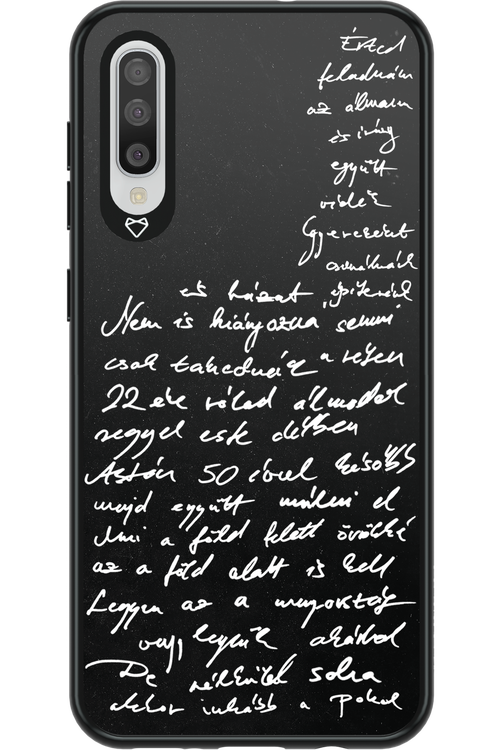 Érted
feladnám
az álmaim
és így
együtt
vidék
Gyerekeket
csinálnánk
és házat építenénk
Nem is hiányozna semmi
csak takednád a
22 éve rólad álmodok
reggel este délben
Aztán 50 évvel később
majd együtt múlni el
Ami a föld felett örökké
az a föld alatt is kell
Legyen az a mennyország
vagy legyünk akárhol
De nélküled soha
akkor inkább a pokol